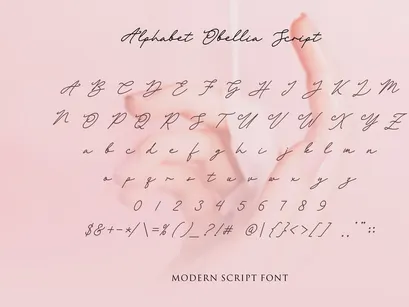 Alphabet Obellia Script
A B C D E F G H I J K L M
N O P Q R S T U V W X Y Z
a b c d e f g h i j k l m n
o p q r s t u v w x y z
0 1 2 3 4 5 6 7 8 9
$&+-*/\=%()_?!# @|{}<>[] .,"'::
MODERN SCRIPT FONT